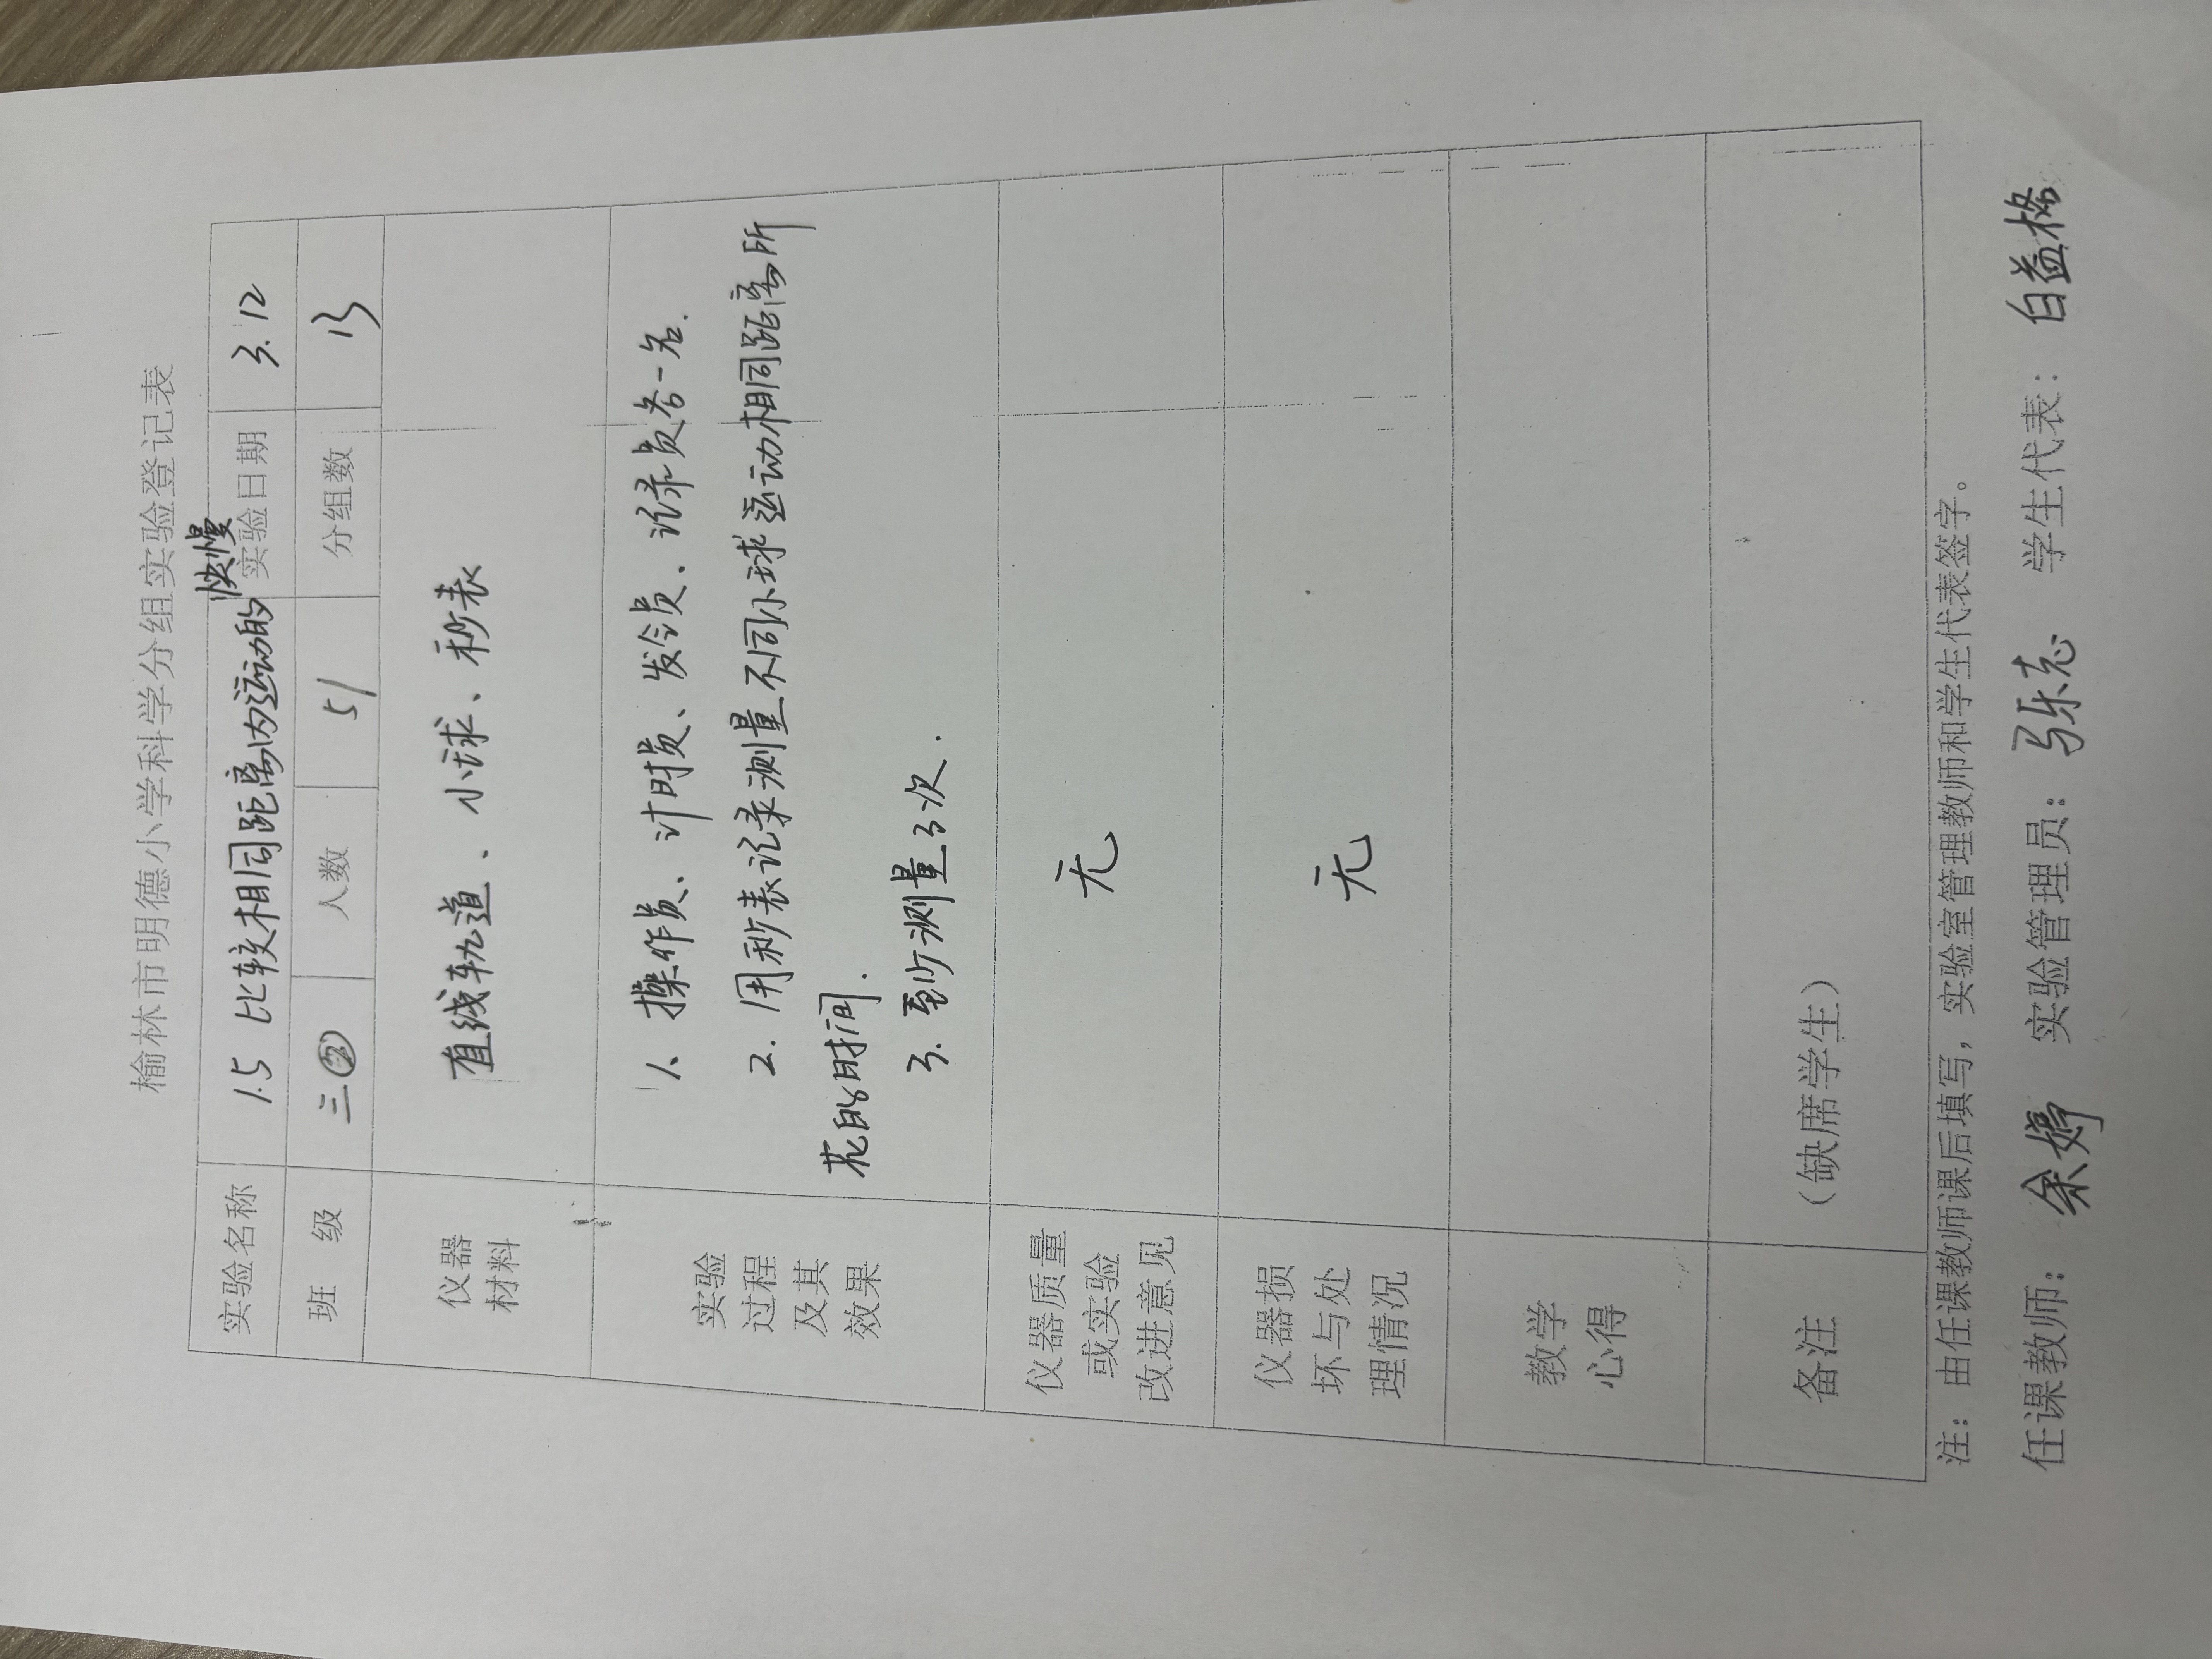 榆林市明德小学科学分组实验登记表
实验名称 1.5 比较相同距离内运动的快慢 实验日期 3.12
班 级 三② 人数 51 分组数 13
仪器
材料
直线轨道、小球、秒表
实验
过程
及其
效果
1、操作员、计时员、发令员、记录员各一名.
2. 用秒表记录测量不同小球运动相同距离所
花的时间.
3. 至少测量3次.
仪器质量
或实验
改进意见
无
仪器损
坏与处
理情况
无
教学
心得
备注
(缺席学生)
注: 由任课教师课后填写, 实验室管理教师和学生代表签字。
任课教师: 余婷 实验管理员: 马乐志 学生代表: 白益格